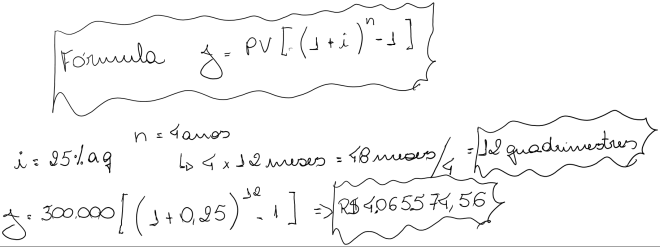 Fórmula J = PV [(1 + i)^n - 1]
n = 4 anos
i = 25% aq ↳ 4 x 12 meses = 48 meses/4 = 12 quadrimestres
J = 300.000 [(1 + 0,25)^12 - 1] => R$ 4.065.574,56